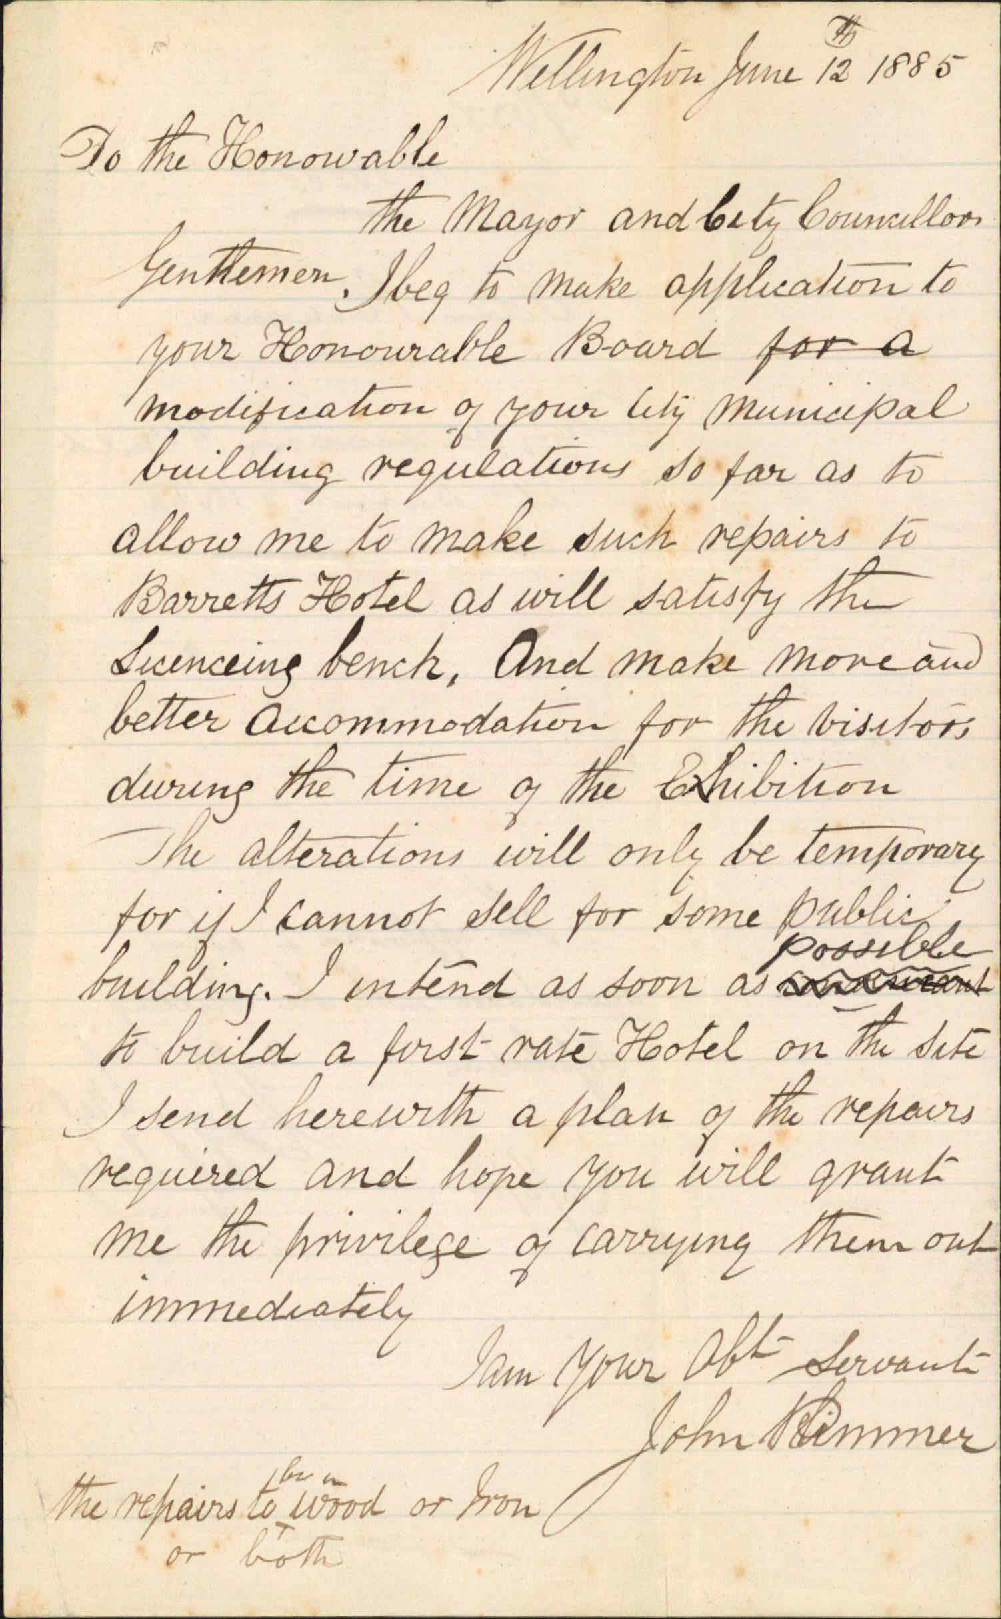 Wellington June 12th 1885
To the Honowable
the Mayor and City Councillors
Gentlemen. I beg to make application to
your Honourable Board for a
modification of your City Municipal
building regulations so far as to
allow me to make such repairs to
Barretts Hotel as will satisfy the
Licenceing bench, And make more and
better accommodation for the visitors
during the time of the Exhibition
The alterations will only be temporary
for if I cannot sell for some public
building. I intend as soon as possible
to build a first rate Hotel on the site
I send herewith a plan of the repairs
required and hope you will grant
me the privilege of carrying them out
immediately
I am Your Obt Servant
John Rimmer
the repairs to be in wood or Iron
or both